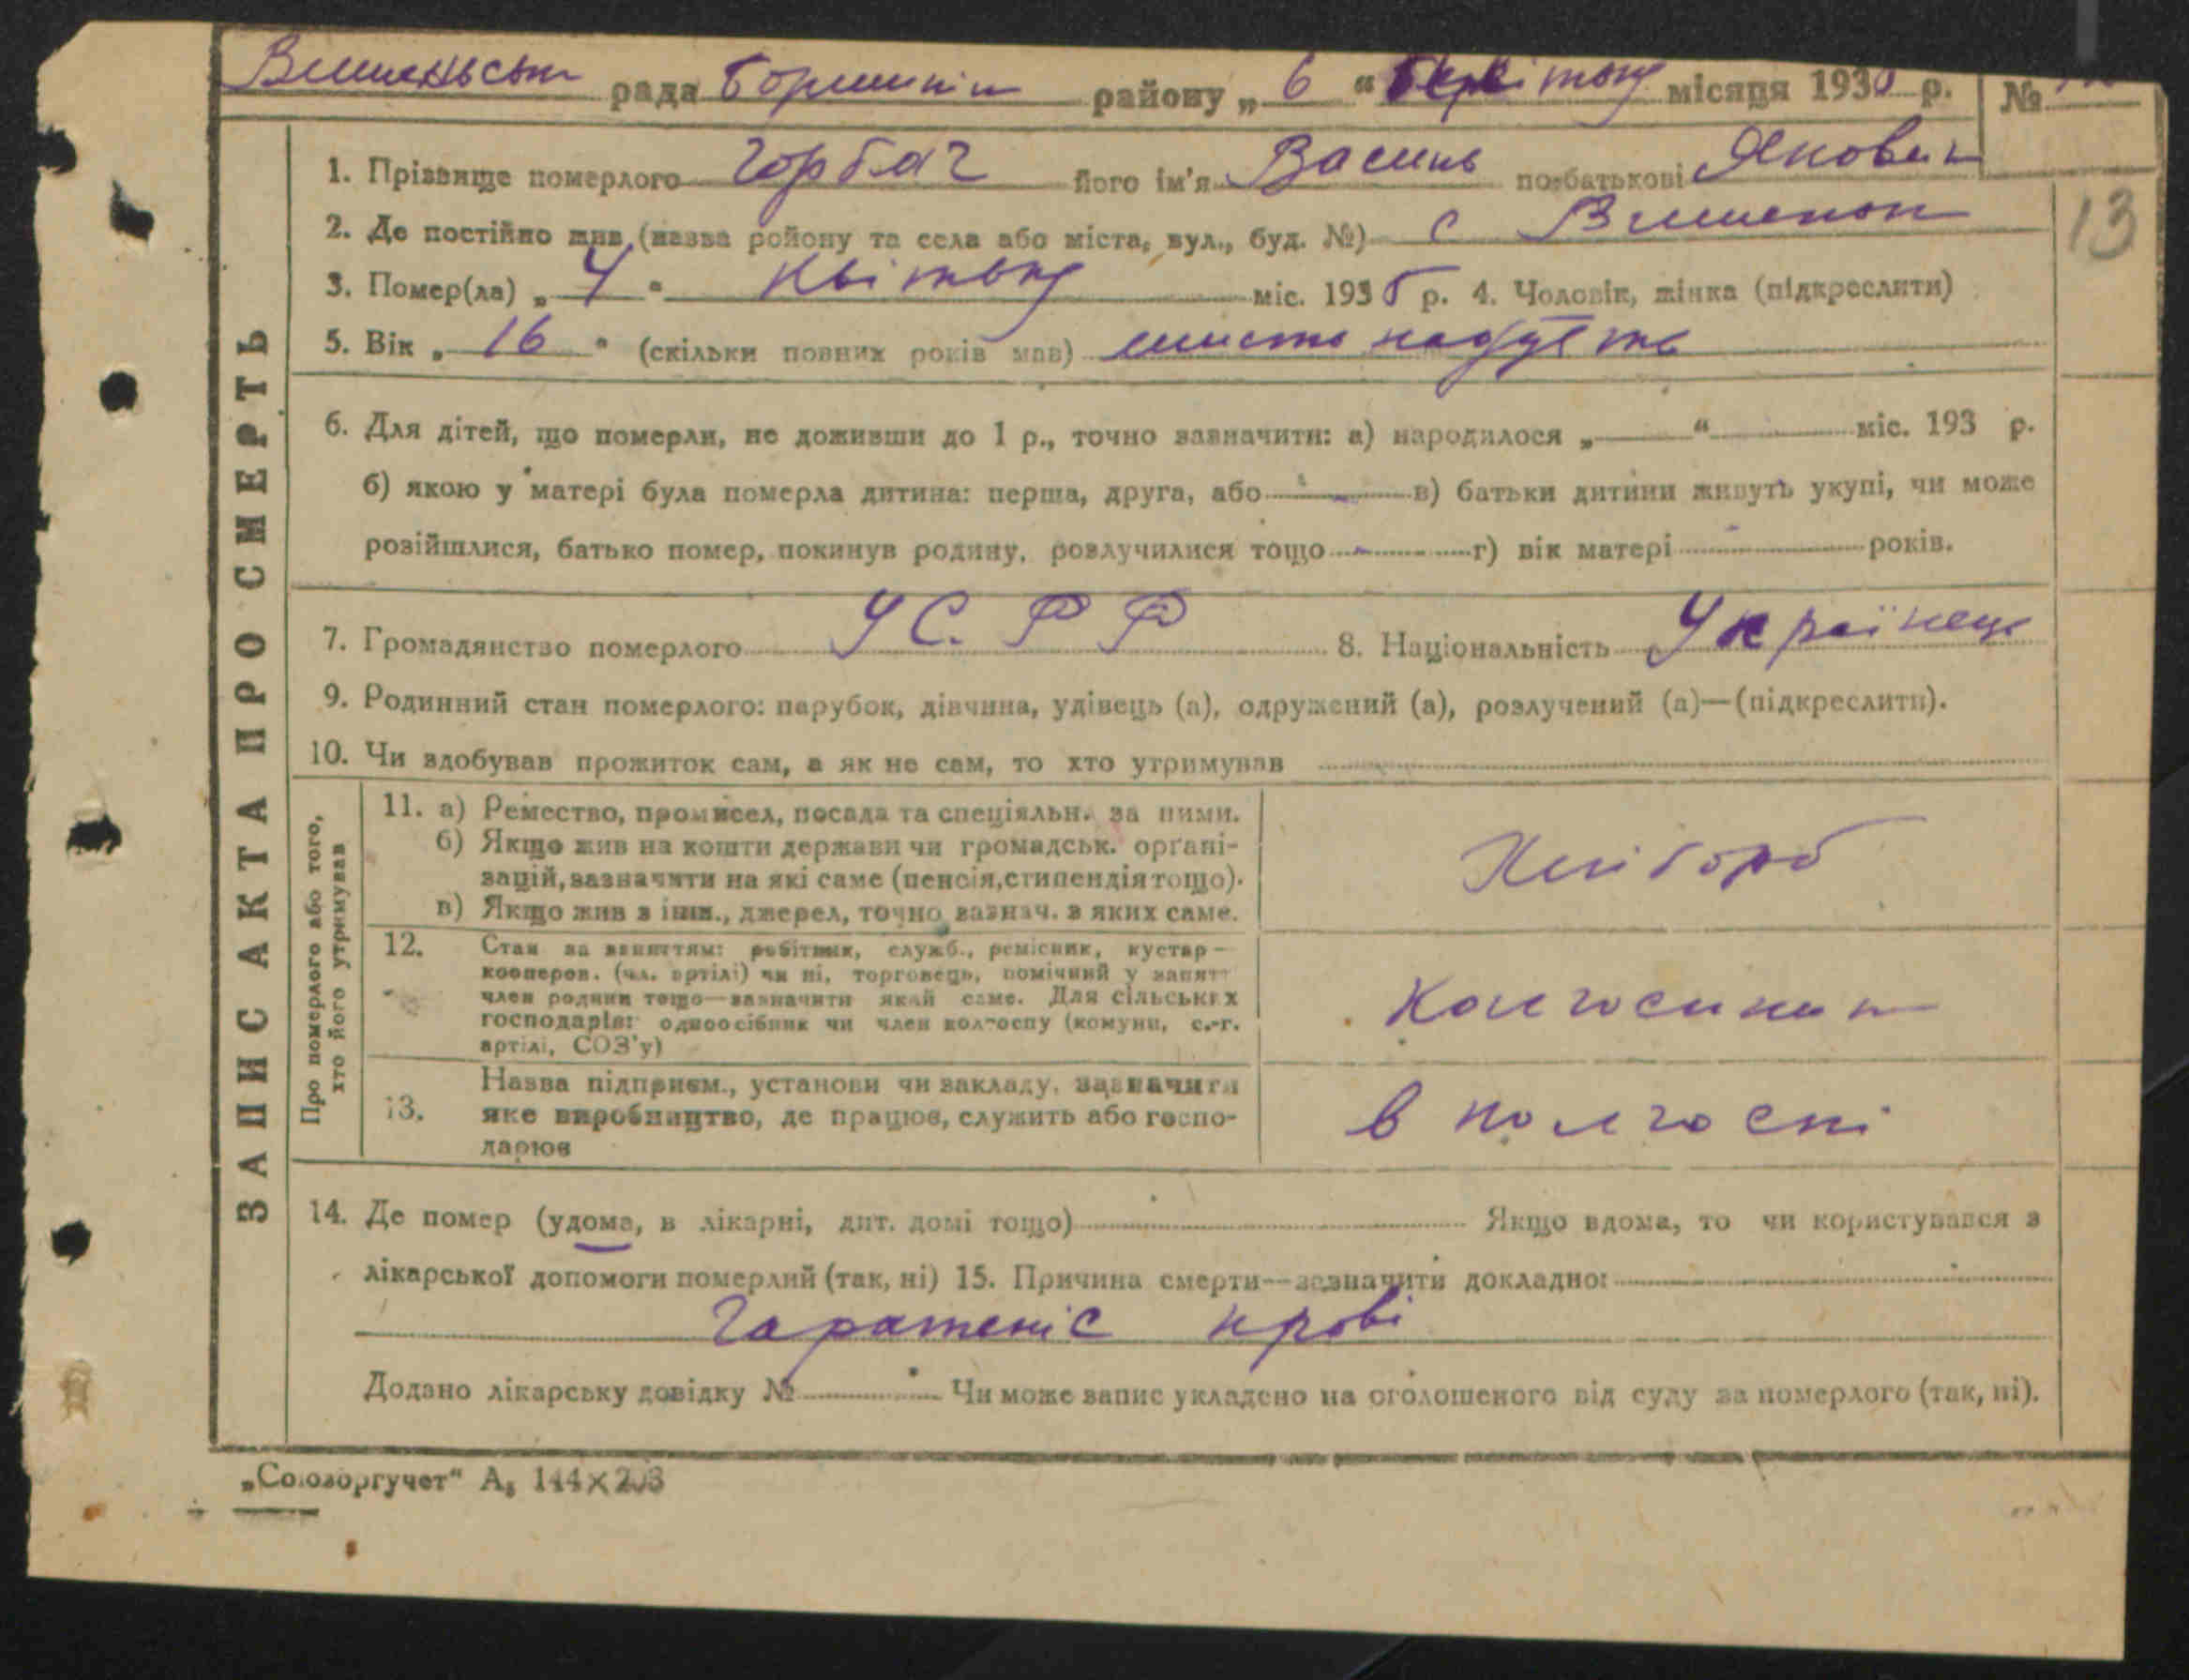 рада район у „ 6 “ місяця 193 р. №
1. Прізвище померлого Горбач його ім'я Василь по-батькові Якович
13
2. Де постійно жив (назва ройону та села або міста, вул., буд. №) с
3. Помер(ла) „ 4 “ квітня міс. 1935 р. 4. Чоловік, жінка (підкреслити)
5. Вік „ 16 “ (скільки повних років мав) шистнадцять
6. Для дітей, що померли, не доживши до 1 р., точно зазначити: а) народилося „ “ міс. 193 р.
б) якою у матері була померла дитина: перша, друга, або в) батьки дитини живуть укупі, чи може
розійшлися, батько помер, покинув родину, розлучилися тощо г) вік матері років.
7. Громадянство померлого УСРР 8. Національність Українець
9. Родинний стан померлого: парубок, дівчина, удівець (а), одружений (а), розлучений (а)—(підкреслити).
10. Чи здобував прожиток сам, а як не сам, то хто утримував
ЗАПИС АКТА ПРО СМЕРТЬ
Про померлого або того,
хто його утримував
11. а) Ремество, промисел, посада та спеціяльн. за ними.
б) Якщо жив на кошти держави чи громадськ. органі-
зацій, зазначити на які саме (пенсія, стипендія тощо).
в) Якщо жив з інш., джерел, точно зазнач. з яких саме.
Хлібороб
12. Стан за заняттям: робітник, служб., ремісник, кустар—
кооперов. (чл. артілі) чи ні, торговець, помічний у занят
член родини тощо—зазначити який саме. Для сільських
господарів: одноосібник чи член колгоспу (комуни, с.-г.
артілі, СОЗ'у)
Колгоспник
13. Назва підприєм., установи чи закладу, зазначити
яке виробництво, де працює, служить або госпо-
дарює
в колгоспі
14. Де помер (удома, в лікарні, дит. домі тощо) Якщо вдома, то чи користувався з
лікарської допомоги померлий (так, ні) 15. Причина смерти—зазначити докладно:
крові
Додано лікарську довідку № Чи може запис укладено на оголошеного від суду за померлого (так, ні).
„Союзоргучет“ А₅ 144×203